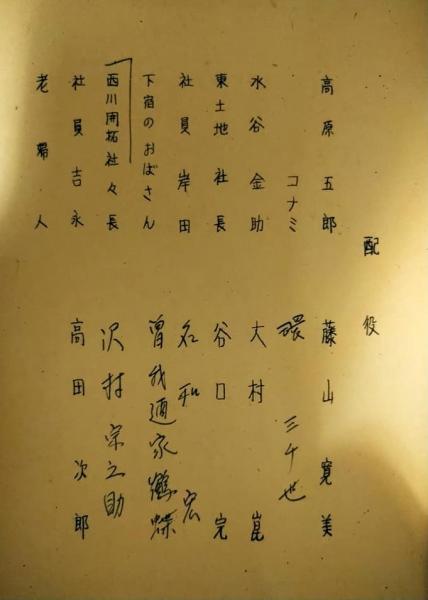 配役
高原五郎　藤山寛美
コナミ　環三千也
水谷金助　大村崑
東土地社長　谷口完
社員岸田　名和宏
下宿のおばさん　曽我廼家鶴蝶
西川開拓社々長　沢村宗之助
社員吉永　高田次郎
老婦人